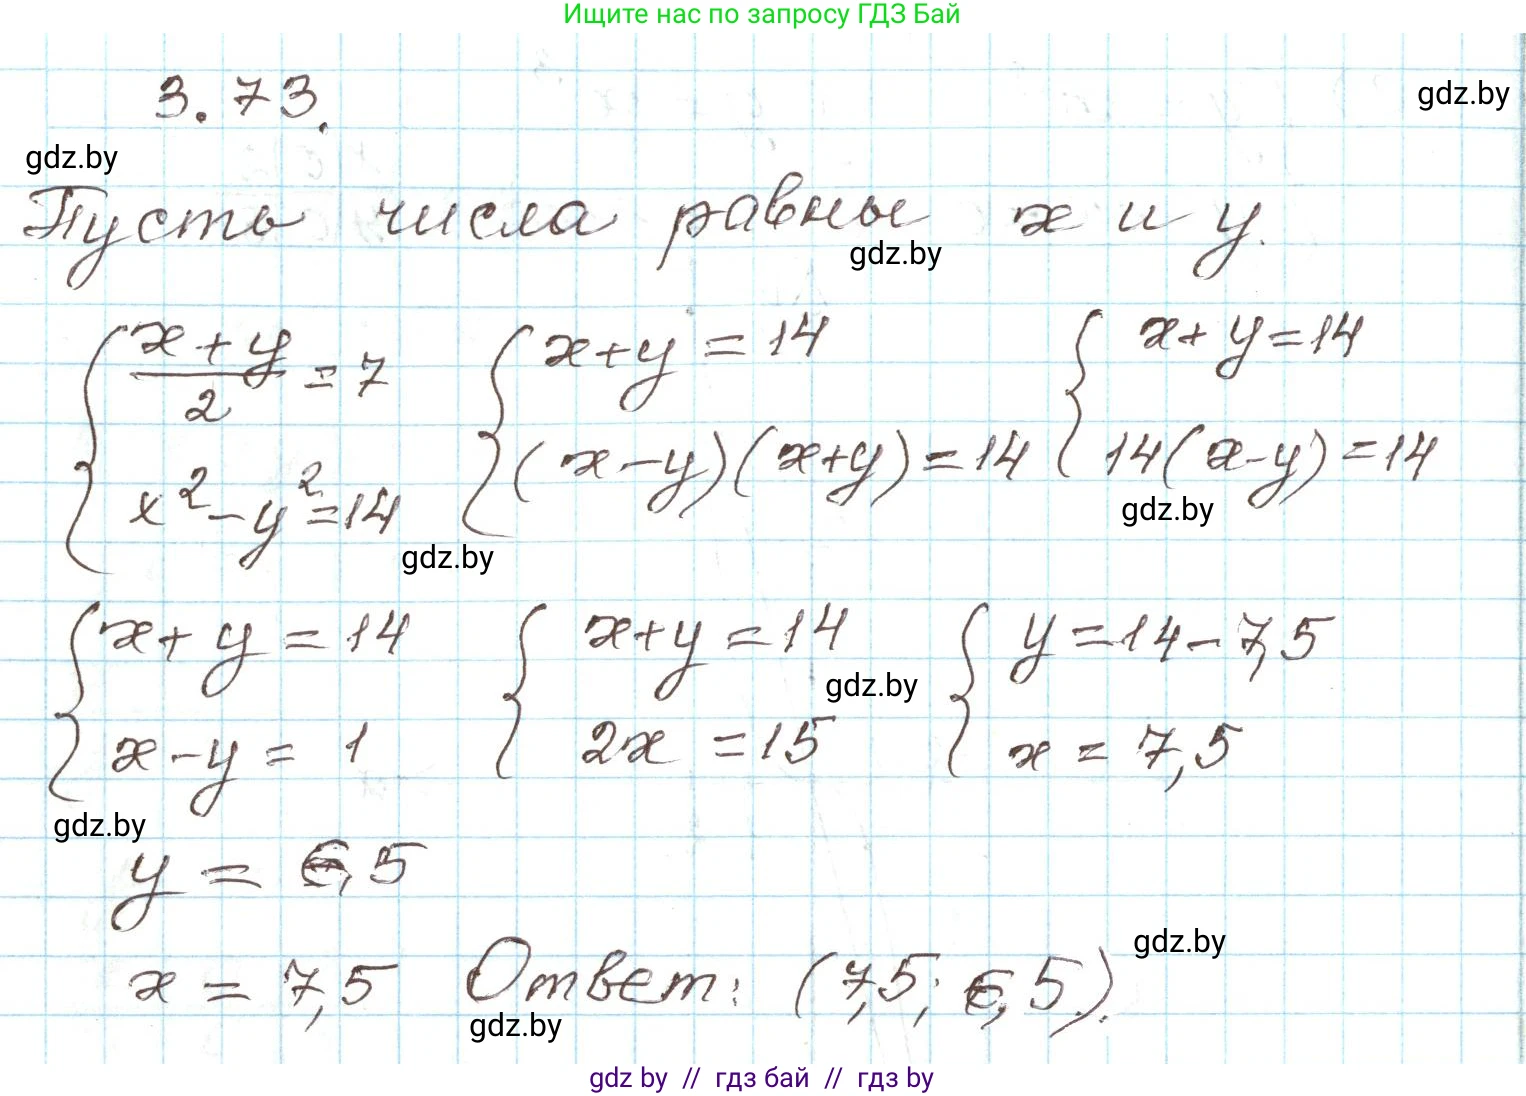 Ищите нас по запросу ГДЗ Бай
3.73.
gdz.by
gdz.by
Пусть числа равны x и y.
gdz.by
{ (x+y)/2 = 7 { x+y = 14 { x+y=14
x²-y²=14 (x-y)(x+y)=14 14(x-y)=14
gdz.by
gdz.by
{ x+y=14 { x+y=14 { y=14-7,5
gdz.by
x-y= 1 2x =15 x = 7,5
gdz.by
y = 6,5
gdz.by
x = 7,5 Ответ: (7,5; 6,5).
gdz.by
gdz by // гдз бай // гдз by